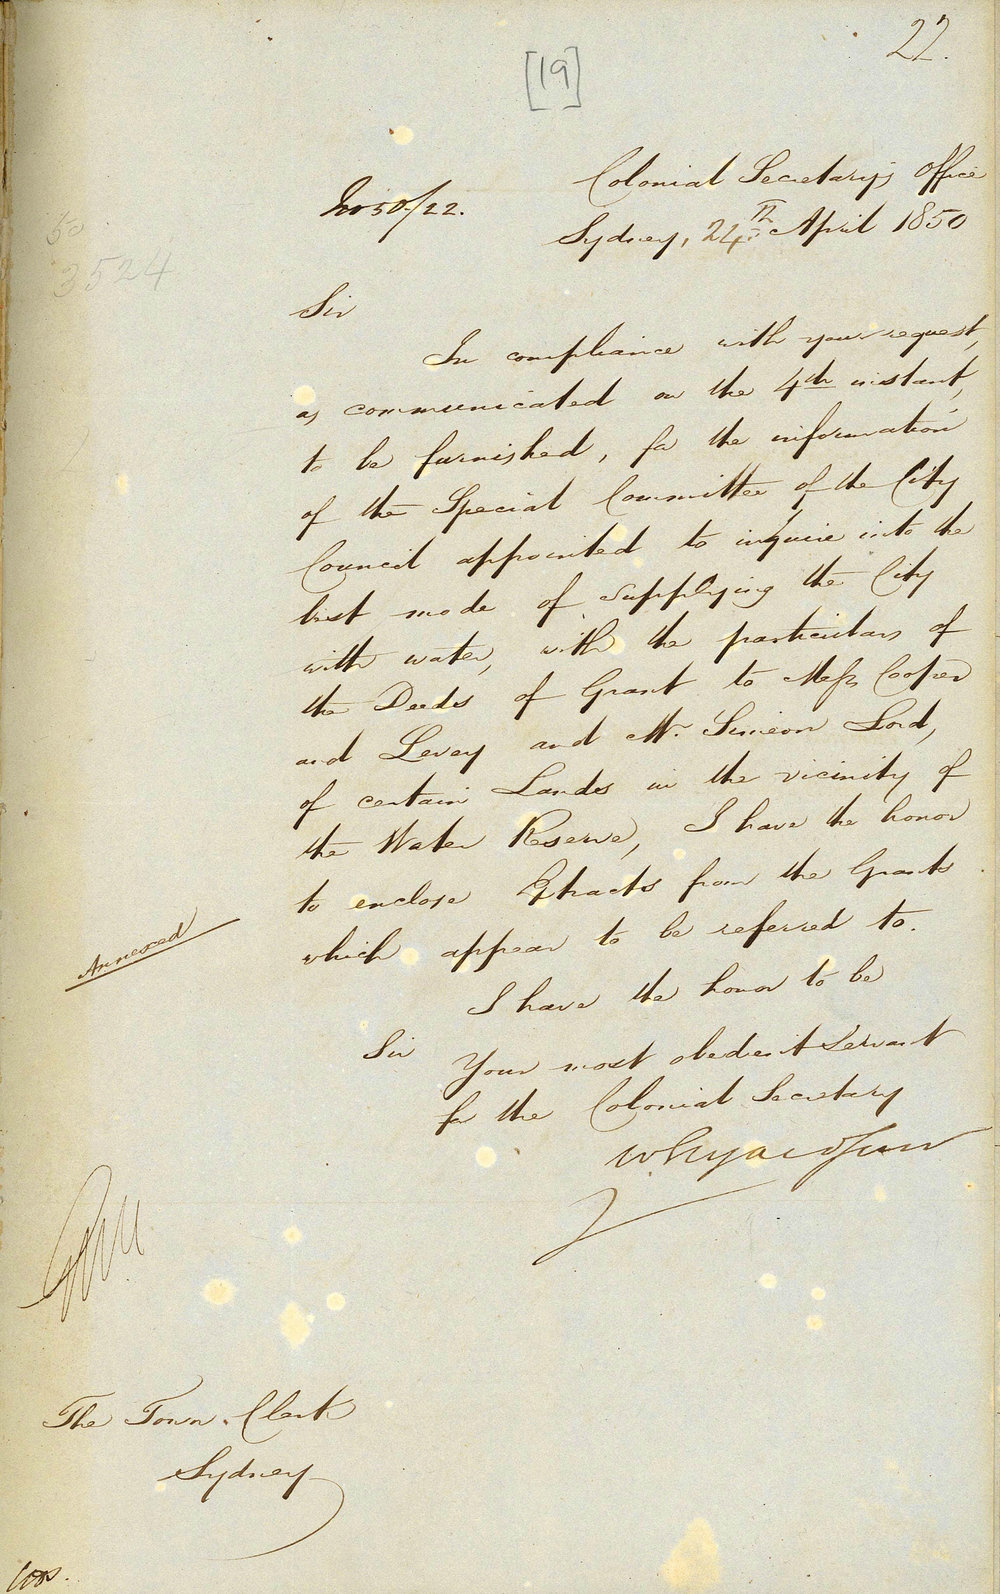 22.
[19]
Colonial Secretary's Office
No 50/22.
Sydney, 24th April 1850
50
3524
Sir
In compliance with your request,
as communicated on the 4th instant,
to be furnished, for the information
of the Special Committee of the City
Council appointed to inquire into the
best mode of supplying the City
with water, with the particulars of
the Deeds of Grant to Messrs Cooper
and Levey and Mr. Simeon Lord,
of certain Lands in the vicinity of
the Water Reserve, I have the honor
to enclose Extracts from the Grants
Annexed
which appear to be referred to.
I have the honor to be
Sir
Your most obedient Servant
for the Colonial Secretary
The Town Clerk
Sydney